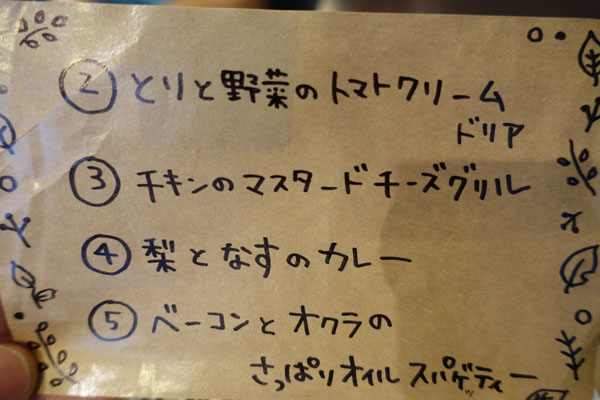 ② とりと野菜のトマトクリーム
ドリア
③ チキンのマスタードチーズグリル
④ 梨となすのカレー
⑤ ベーコンとオクラの
さっぱりオイルスパゲティー